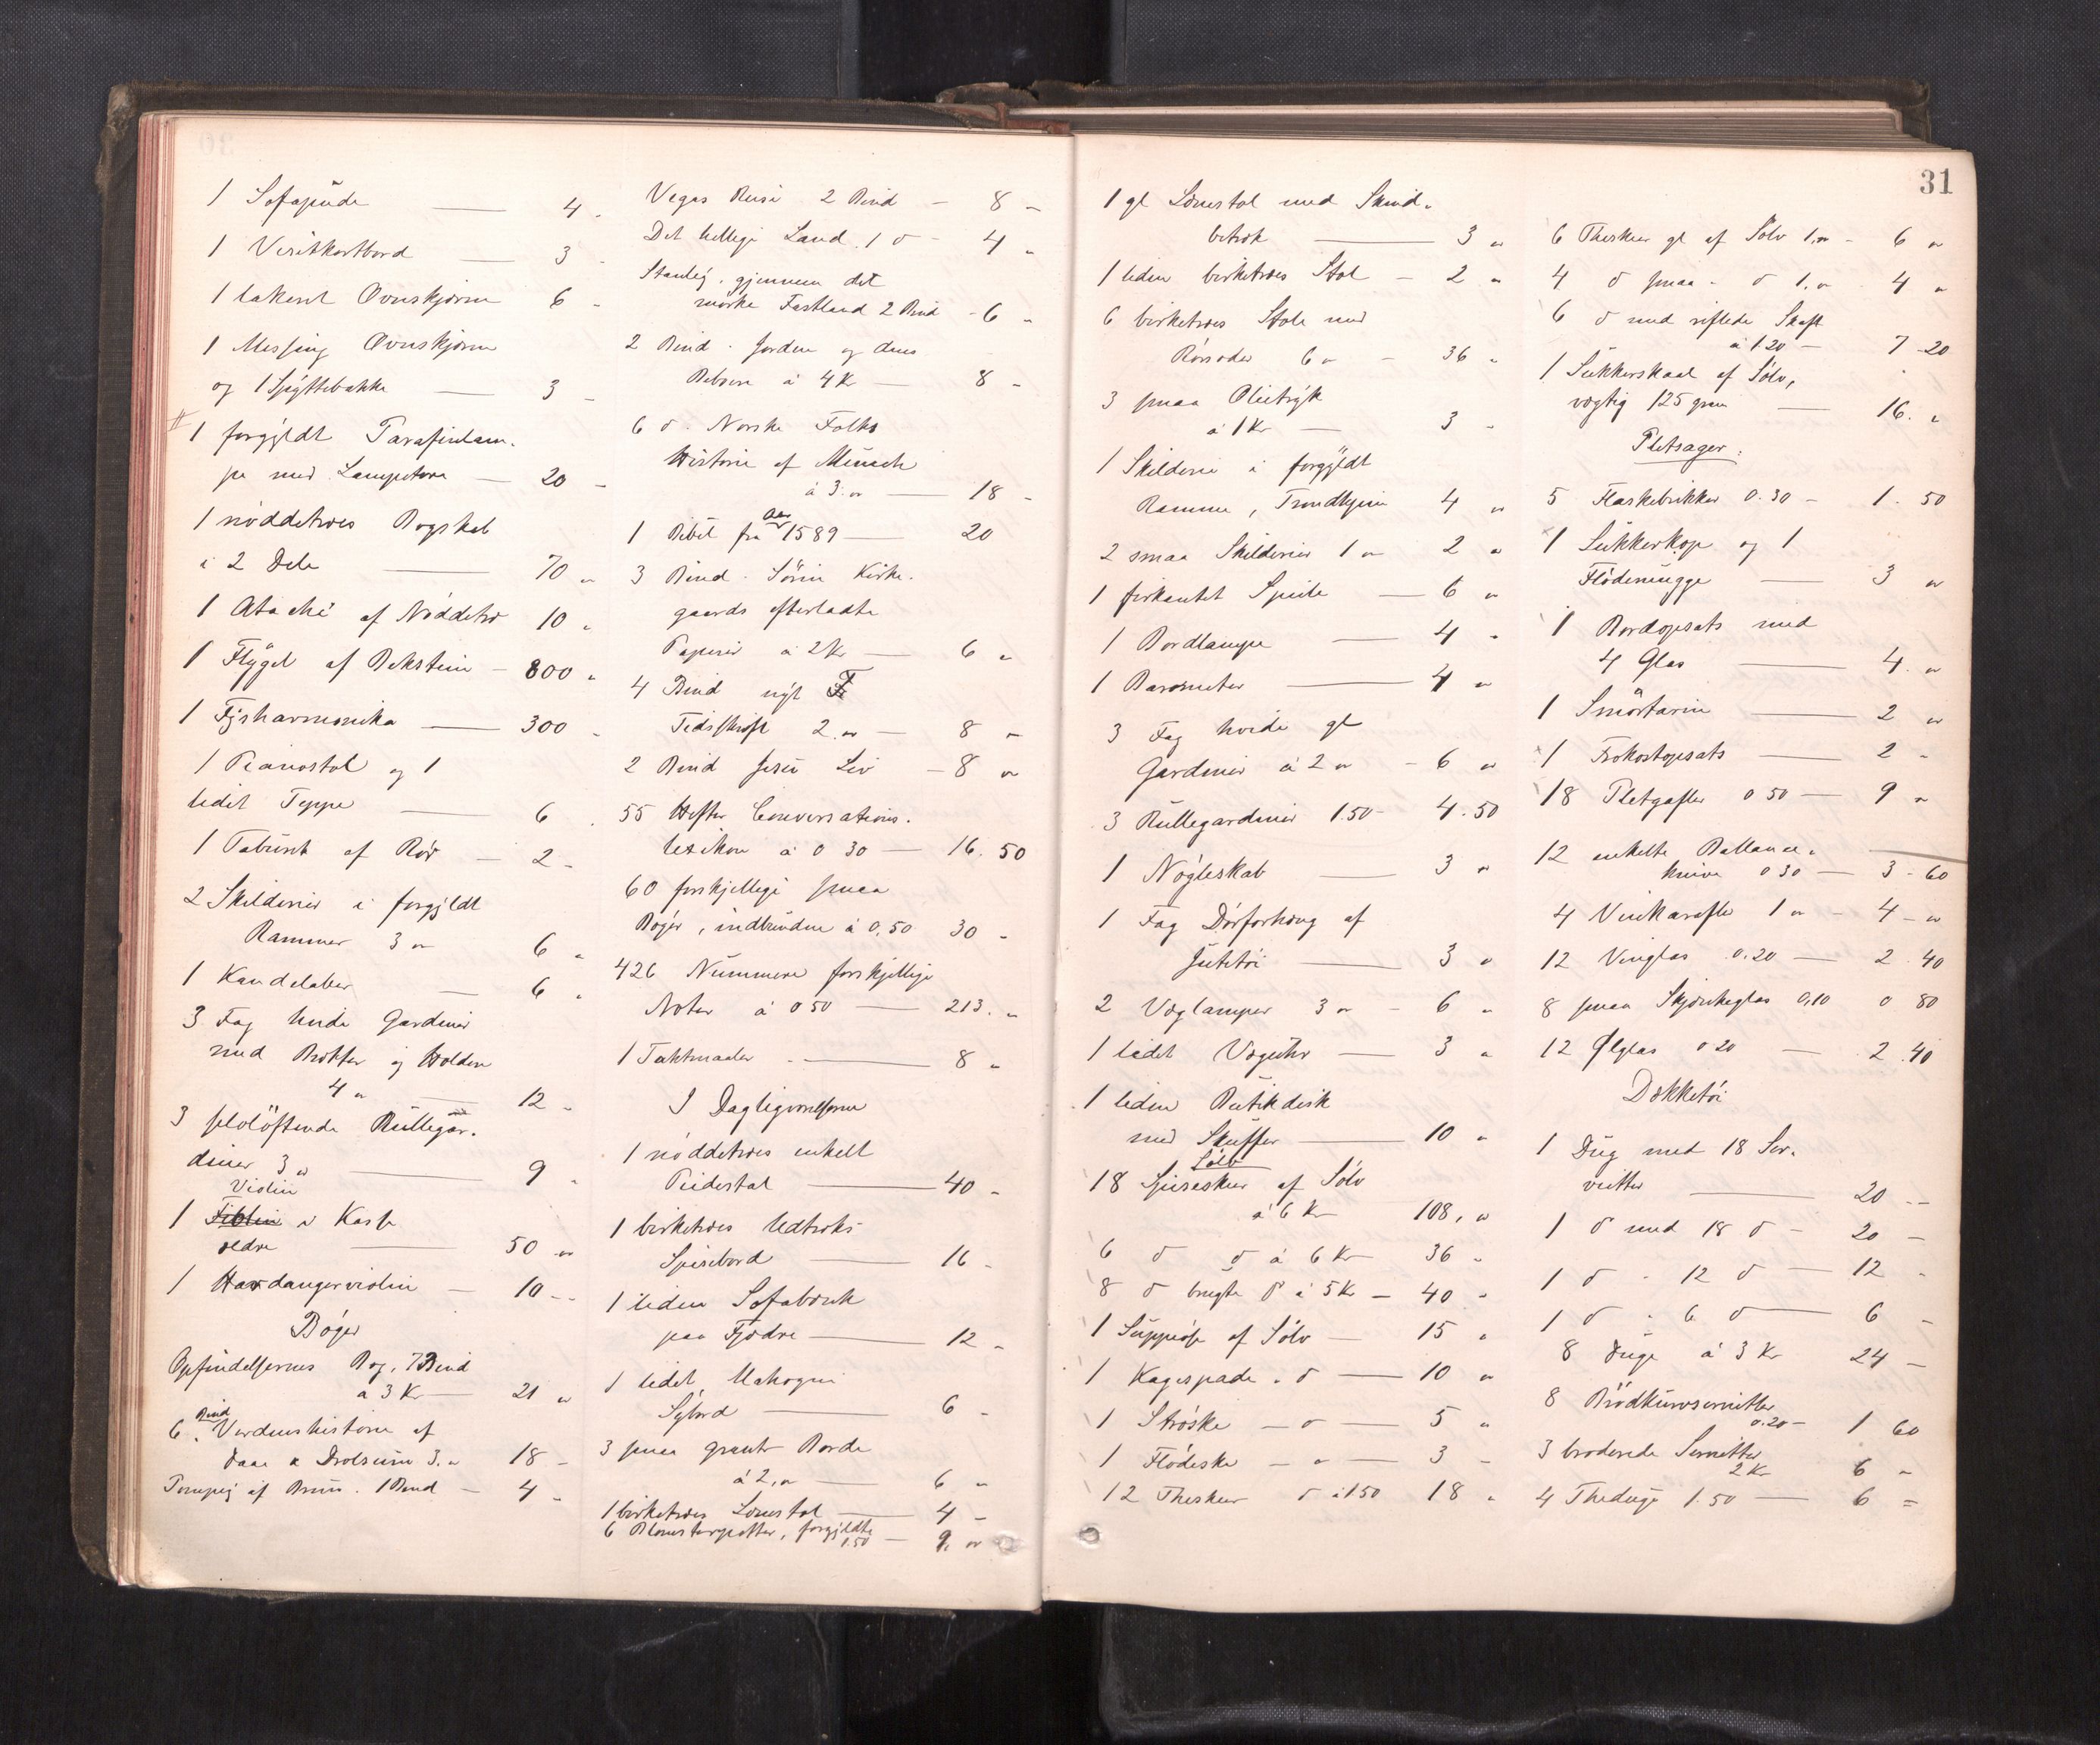 1 Sofapude — 4 -
1 Visitkortbord — 3 -
1 lakert Ovnskjærm 6 -
1 Messing Ovnskjærm
og 1 Spyttebakke — 3 -
1 forgyldt Parafinlam-
pe med Lampetære — 20 -
1 nöddetræs Bogskab
i 2 Dele — 70 "
1 Atache af Nöddetræ 10 "
1 Flygel af Bekstein — 800 "
1 Fysharmonika — 300 -
1 Pianostol og 1
lidet Teppe — 6 .
1 Taburet af Rör — 2 -
2 Skilderier i forgyldt
Rammer 3 " 6 "
1 Kandelaber — 6 "
3 Fag hvide Gardiner
med Brikker og Holdere
4 " — 12 -
3 selvlöftende Rullegar-
diner 3 " — 9 "
Violin
1 Fiolin i Kasse
ældre — 50 "
1 Hardangerviolin — 10 --
Böger
Opfindelsernes Bog, 7 Bind
a 3 Kr — 21 "
Bind
6 . Verdenshistorie af
Daae & Drolsum 3. " 18 -
Pompeij af Bruu . 1 Bind — 4 "
Vegas Reise 2 Bind — 8 -
Det hellige Land . 1 d - 4 "
Stanley . gjennem det
mörke Fastland 2 Bind - 6 "
2 Bind . Jorden og dens
Beboere á 4 Kr — 8 -
6 d . Norske Folks
Historie af Munch
á 3. " — 18 -
Aar
1 Bibel fra 1589 — 20
3 Bind . Sören Kirke-
gaards efterladte
Papirer á 2 Kr — 6 "
4 Bind nyt F
Tidsskrift 2. " — 8 -
2 Bind Jesu Liv — 8 "
55 Hefter Conversations-
lexikon á 0 30 — 16. 50
60 forskjellige smaa
Böger, indbundne á 0,50 30 -
426 Nummere forskjellige
Noter á 0 50 — 213. "
1 Taktmaaler — 8 "
I Dagligværelserne
1 nöddetræs enkelt
Piedestal — 40 -
1 birketræs Udtræks-
Spisebord — 16 -
1 liden Sofabænk
paa Fjædre — 12 -
1 lidet Mahogni
Sybord — 6 -
3 smaa grönt Borde
á 2, " — 6 "
1 birketræs Lænestol — 4 -
6 Blomsterpotter, forgyldte
1.50 — 9. "
31
1 gl Lænestol med Skind-
betræk — 3 "
1 liden birketræs Stol — 2 "
6 birketræs Stole med
Rörsæder 6 " — 36 "
3 smaa Olietryk
á 1 Kr — 3 -
1 Skilderi i forgyldt
Ramme, Trondhjem 4 "
2 smaa Skilderier 1 " 2 "
1 firkantet Speile — 6 "
1 Bordlampe — 4 -
1 Barometer — 4 "
3 Fag hvide gl
Gardiner á 2 " - 6 "
3 Rullegardiner 1.50 - 4.50
1 Nögleskab — 3 "
1 Fag Dörforhæng af
Jutetöi — 3 "
2 Væglamper 3 " - 6 "
1 lidet Vægeuhr — 3 "
1 liden Butikdisk
med Skuffer — 10 "
Sölv
18 Spiseskeer af Sölv
á 6 Kr 108, "
6 d d á 6 Kr 36 -
8 d brugte d á 5 Kr — 40 -
1 Suppeöse af Sölv — 15 "
1 Kagespade . d — 10 "
1 Ströske — d — 5 "
1 Flödeske — " — 3 -
12 Theskeer d á 1 50 18 "
6 Theskeer gl af Sölv 1. " - 6 "
4 d smaa - d 1. " 4 "
6 d med riflede Skaft
á 1.20 — 7 - 20
1 Sukkerskaal af Sölv,
vægtig 125 gram — 16. "
Pletsager.
5 Flaskebrikker 0.30 - 1. 50
1 Sukkerkop og 1
Flödemugge — 3 "
1 Bordopsats med
4 Glas — 4. "
1 Smörtærin — 2 "
1 Frokostopsats — 2 -
18 Pletgafler 0 50 — 9 "
12 enkelte Ballance-
knive 0 30 — 3 - 60
4 Vinkarafler 1 " - 4 - "
12 Vinglas 0.20 — 2. 40
8 smaa Skjænkeglas 0,10 0 80
12 Ølglas 0 20 — 2. 40
Dækketöi
1 Dug med 18 Ser-
vietter — 20 --
1 d med 18 d - 20 -
1 d - 12 d — 12 -
1 d - 6 d — 6 -
8 Duge á 3 Kr 24 -
8 Brödkurvservietter
0.20 - 1 60
3 broderede Servietter
2 Kr 6 "
4 Theduge 1.50 — 6 =